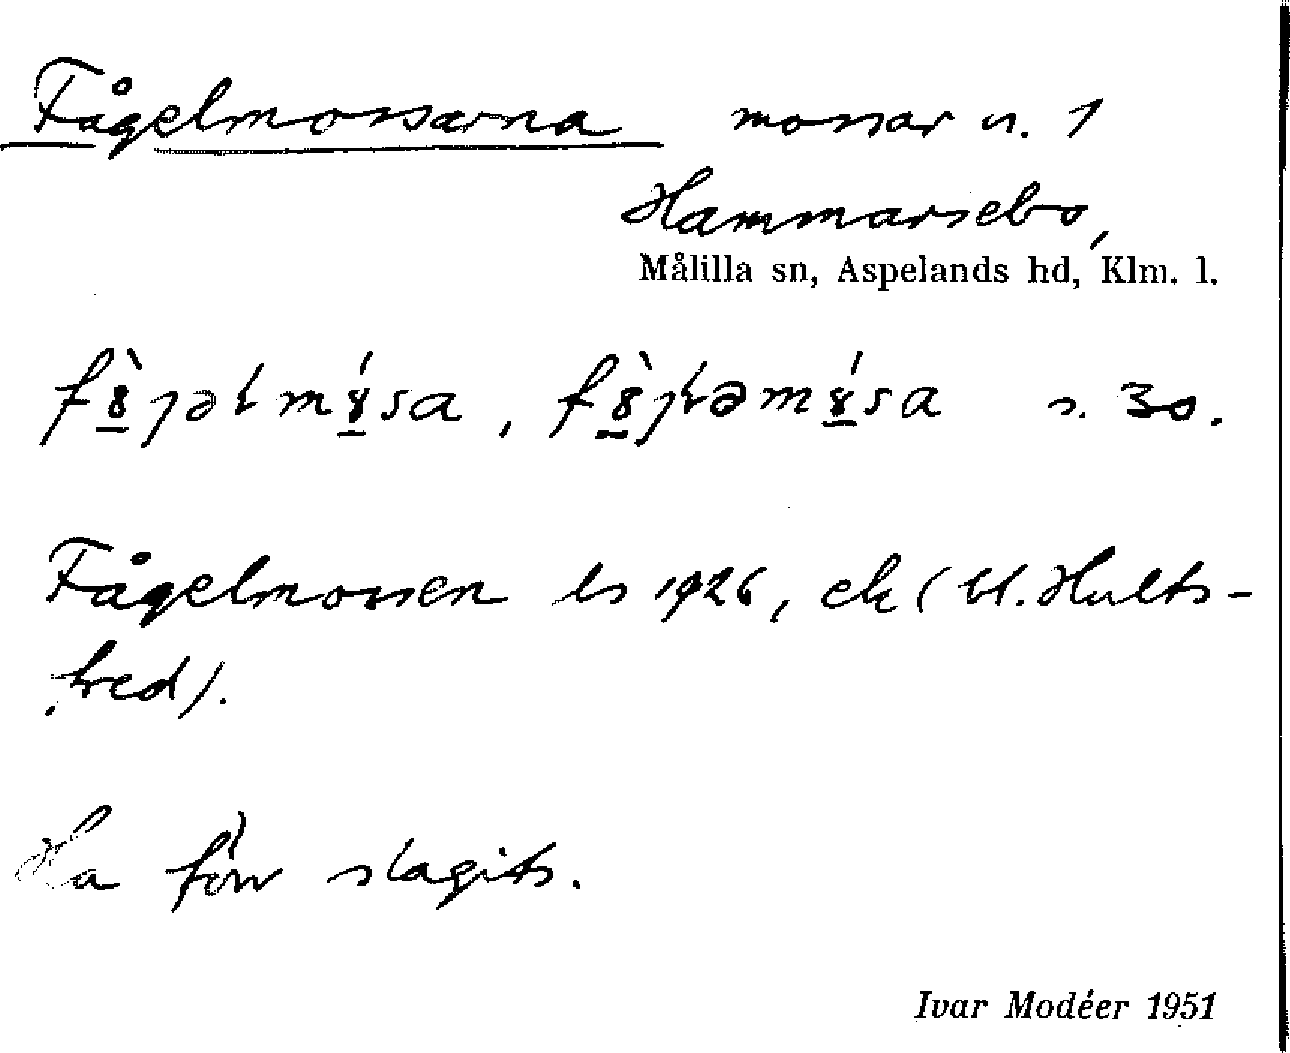 Fågelmossarna mossar u. 1
Hammarsebo,
Målilla sn, Aspelands hd, Klm. l.
s. 30.
Fågelmossen ls 1926, ek (bl. Hults-
fred).
Ha förr slagits.
Ivar Modéer 1951